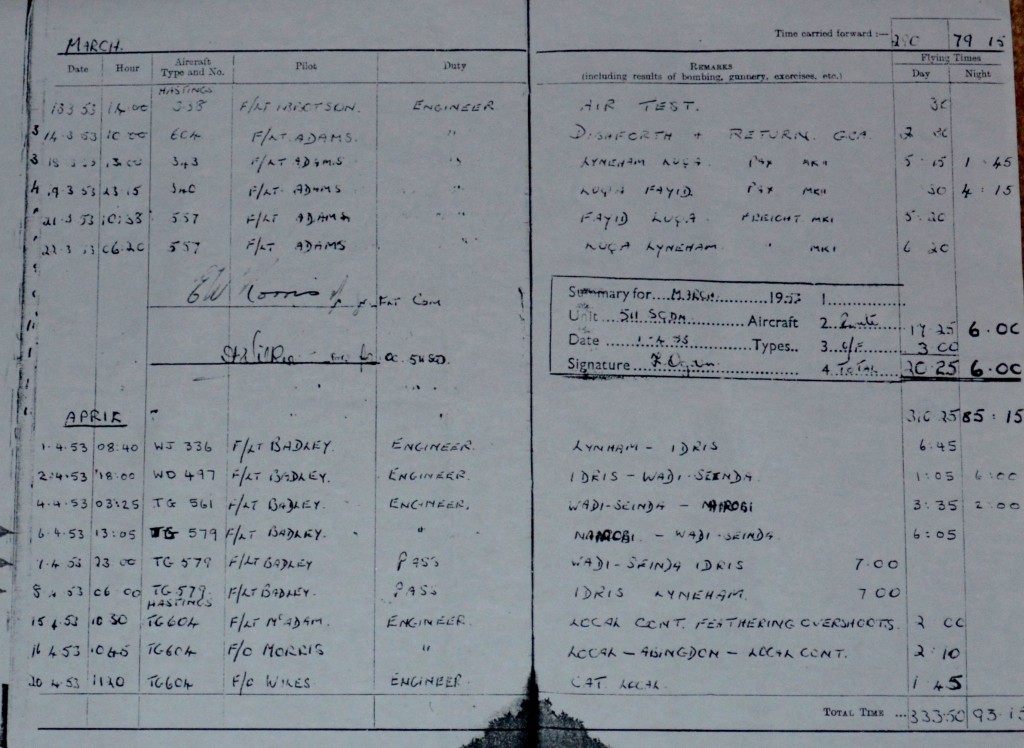 MARCH. Time carried forward :— 290 79 15
Date Hour Aircraft Type and No. Pilot Duty REMARKS (including results of bombing, gunnery, exercises, etc.) Flying Times Day Night
HASTINGS
13 3 53 14.00 F/LT IBERTSON. ENGINEER AIR TEST. 30
14.3 53 10 00 604 F/LT. ADAMS. " DISHFORTH + RETURN. GCA. 2 30
343 F/LT ADAMS " LYNEHAM LUQA. PAX MKII 5 15 1 45
19.3 53 23 15 340 F/LT. ADAMS " LUQA FAYID PAX MKII 30 4 15
21.3 53 557 F/LT ADAMS " FAYID LUQA. FREIGHT MKI 5.20
22.3 53 06.20 557 F/LT ADAMS LUQA LYNEHAM. " MKI 6 20
Summary for MARCH 1953 1
Unit 511 SQDN. Aircraft 2 Route 17 25 6.00
Date 1.4.53 Types.. 3 3 00
Signature 4 TOTAL 20 25 6.00
511 SQD.
APRIL 310 25 85 : 15
1.4.53 08:40 WJ 336 F/LT BADLEY. ENGINEER. LYNHAM - IDRIS 6:45
2.4.53 18:00 WD 497 F/LT BADLEY. ENGINEER. IDRIS - WADI-SEINDA. 1:05 6:00
4.4.53 03:25 TG 561 F/LT BADLEY. ENGINEER. WADI-SEINDA - NAIROBI 3:35 2:00
6.4.53 13:05 TG 579 F/LT BADLEY. " NAIROBI. - WADI-SEINDA. 6:05
23 00 TG 579 F/LT BADLEY PASS WADI-SEINDA IDRIS 7.00
8 4 53 06 00 TG 579. F/LT BADLEY. PASS IDRIS LYNEHAM. 7 00
HASTINGS
15 4.53 10 30 TG604 F/LT McADAM. ENGINEER. LOCAL CONT. FEATHERING OVERSHOOTS. 2 00
16 4.53 1045 TG604 F/O MORRIS " LOCAL - ABINGDON - LOCAL CONT. 2:10
20 4.53 1120 TG604 F/O WILES ENGINEER CAT LOCAL 1 45
TOTAL TIME ... 333.50 93.15